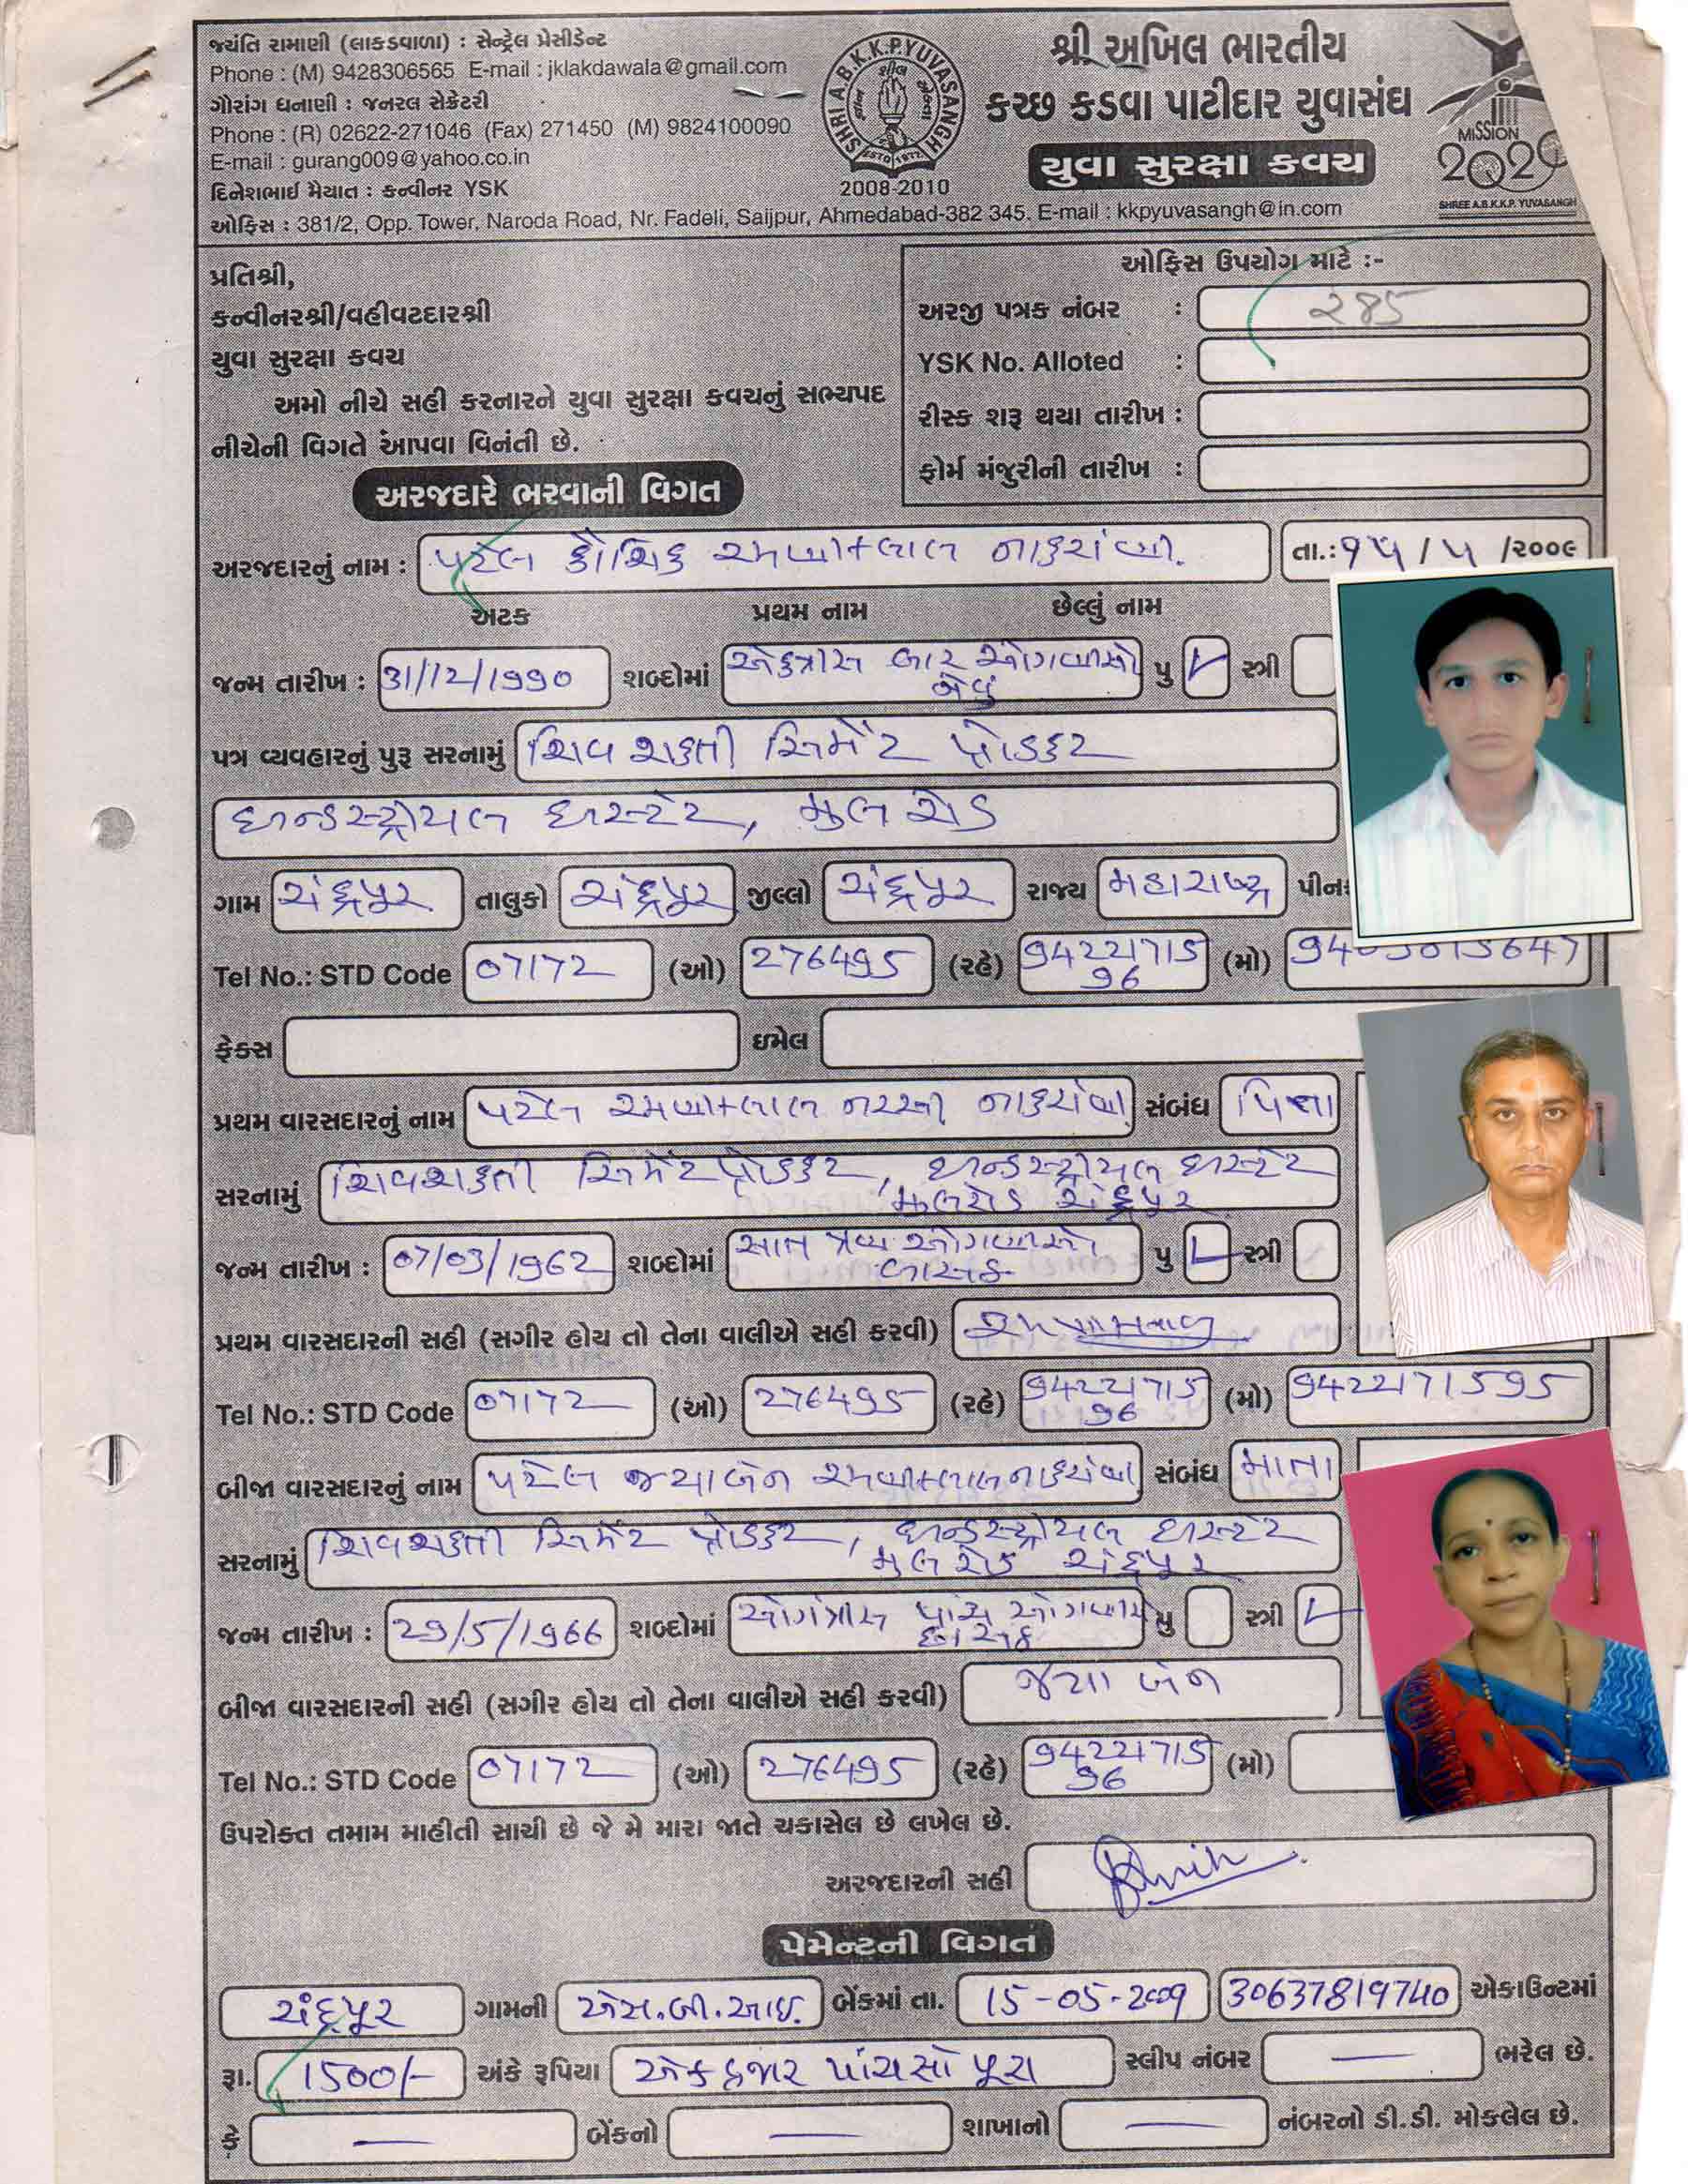 જયંતિ રામાણી (લાકડવાળા) : સેન્ટ્રેલ પ્રેસીડેન્ટ
Phone : (M) 9428306565 E-mail : jklakdawala@gmail.com
ગોરાંગ ધનાણી : જનરલ સેક્રેટરી
Phone : (R) 02622-271046 (Fax) 271450 (M) 9824100090
E-mail : gurang009@yahoo.co.in
દિનેશભાઈ મેયાત : કન્વીનર YSK
SHRI A.B.K.K.P. YUVASANGH
ESTD 1977
2008-2010
શ્રી અખિલ ભારતીય
કચ્છ કડવા પાટીદાર યુવાસંઘ
યુવા સુરક્ષા કવચ
MISSION
2020
SHREE A.B.K.K.P. YUVASANGH
ઓફિસ : 381/2, Opp. Tower, Naroda Road, Nr. Fadeli, Saijpur, Ahmedabad-382 345. E-mail : kkpyuvasangh@in.com
પ્રતિશ્રી,
કન્વીનરશ્રી/વહીવટદારશ્રી
યુવા સુરક્ષા કવચ
અમો નીચે સહી કરનારને યુવા સુરક્ષા કવચનું સભ્યપદ
નીચેની વિગતે આંપવા વિનંતી છે.
ઓફિસ ઉપયોગ માટે :-
અરજી પત્રક નંબર : ૨૪5
YSK No. Alloted :
રીસ્ક શરૂ થયા તારીખ :
ફોર્મ મંજુરીની તારીખ :
અરજદારે ભરવાની વિગત
અરજદારનું નામ : પટેલ કૌશિક રમણીકલાલ નાકરાણી. તા.: ૧૫ / ૫ /૨૦૦૯
અટક પ્રથમ નામ છેલ્લું નામ
જન્મ તારીખ : 31/12/1990 શબ્દોમાં એકત્રીસ બાર ઓગણીસો નેવું પુ ✓ સ્ત્રી
પત્ર વ્યવહારનું પુરૂ સરનામું શિવ શક્તી સિમેંટ પ્રોડક્ટ
ઇન્ડસ્ટ્રીયલ ઇસ્ટેટ, મુલ રોડ
ગામ ચંદ્રપુર તાલુકો ચંદ્રપુર જીલ્લો ચંદ્રપુર રાજ્ય મહારાષ્ટ્ર પીન:
Tel No.: STD Code 07172 (ઓ) 276495 (રહે) 9422171596 (મો)
ફેક્સ ઇમેલ
પ્રથમ વારસદારનું નામ પટેલ રમણીકલાલ નરસી નાકરાણી સંબંધ પિતા
સરનામું શિવશક્તી સિમેંટ પ્રોડક્ટ, ઇન્ડસ્ટ્રીયલ ઇસ્ટેટ
મુલરોડ ચંદ્રપુર
જન્મ તારીખ : 07/03/1962 શબ્દોમાં સાત ત્રણ ઓગણીસો બાસઠ પુ ✓ સ્ત્રી
પ્રથમ વારસદારની સહી (સગીર હોય તો તેના વાલીએ સહી કરવી)
Tel No.: STD Code 07172 (ઓ) 276495 (રહે) 9422171596 (મો) 9422171595
બીજા વારસદારનું નામ પટેલ જયાબેન રમણીકલાલ નાકરાણી સંબંધ માતા
સરનામું શિવશક્તી સિમેંટ પ્રોડક્ટ, ઇન્ડસ્ટ્રીયલ ઇસ્ટેટ
મુલ રોડ ચંદ્રપુર
જન્મ તારીખ : 29/5/1966 શબ્દોમાં ઓગંત્રીસ પાંચ ઓગણીસ છાસઠ પુ સ્ત્રી ✓
બીજા વારસદારની સહી (સગીર હોય તો તેના વાલીએ સહી કરવી) જયા બેન
Tel No.: STD Code 07172 (ઓ) 276495 (રહે) 9422171596 (મો)
ઉપરોક્ત તમામ માહીતી સાચી છે જે મે મારા જાતે ચકાસેલ છે લખેલ છે.
અરજદારની સહી
પેમેન્ટની વિગત
ચંદ્રપુર ગામની એસ.બી.આઇ. બેંકમાં તા. 15-05-2009 30637819740 એકાઉન્ટમાં
રૂા. 1500/- અંકે રૂપિયા એક હજાર પાંચસો પૂરા સ્લીપ નંબર — ભરેલ છે.
કે — બેંકનો — શાખાનો — નંબરનો ડી.ડી. મોકલેલ છે.